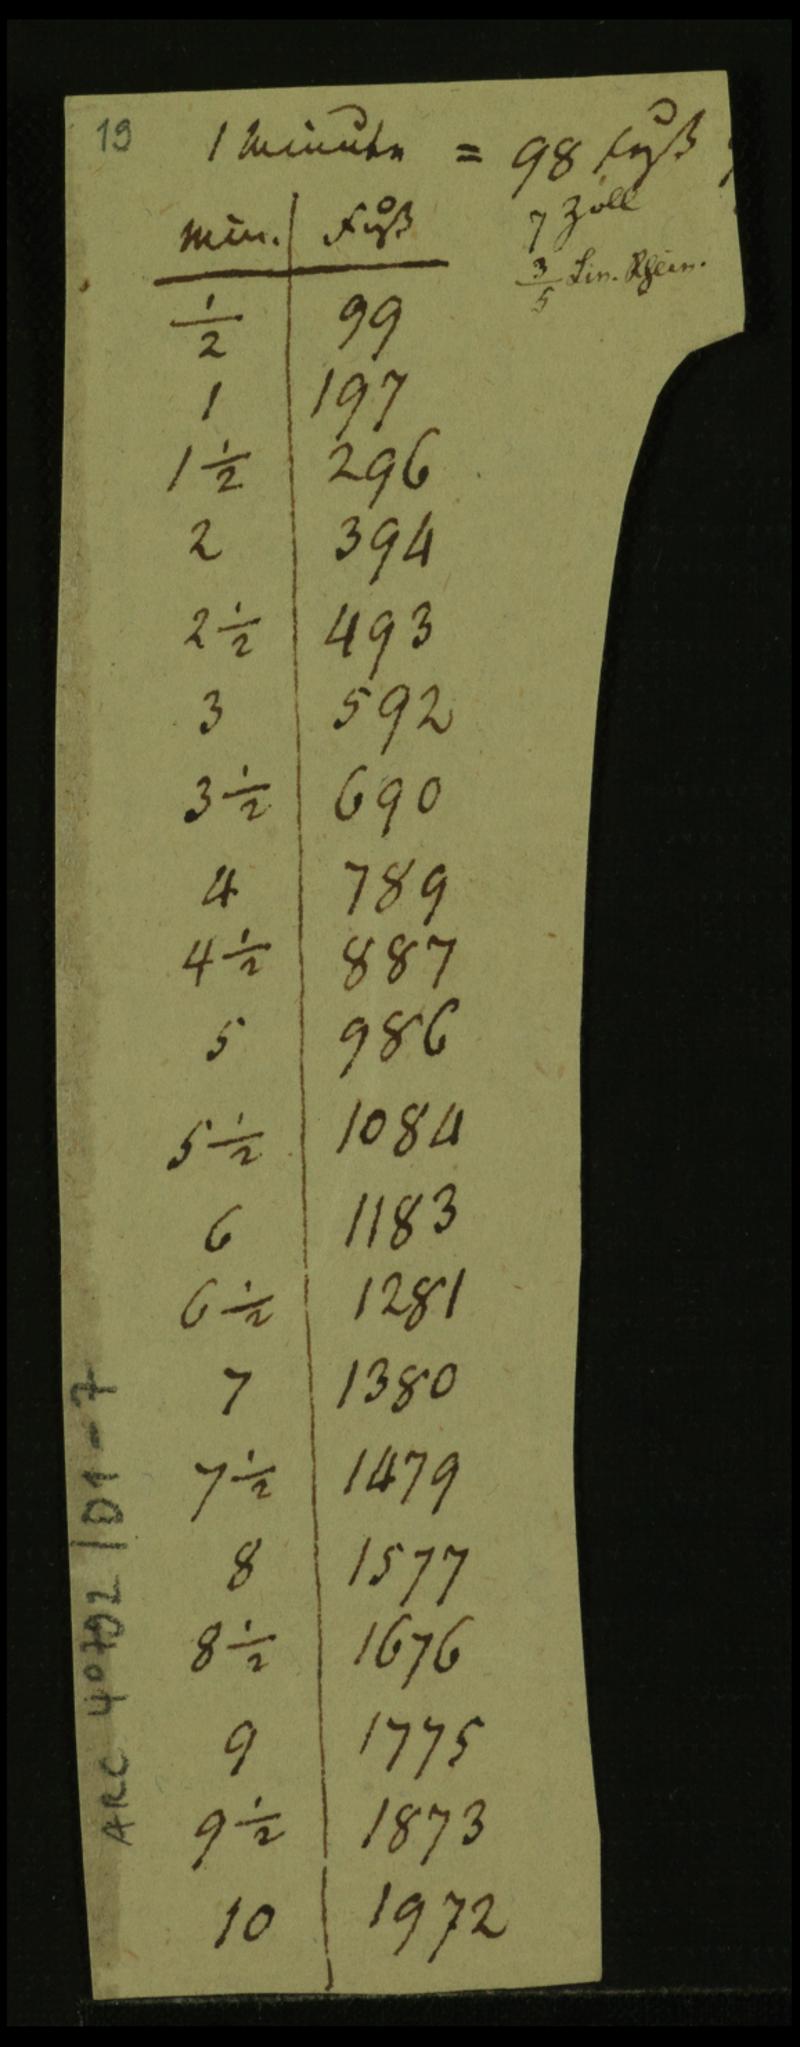 19
1 Minute = 98 Fuß
7 Zoll
3/5 Lin. Rhein.
Min. | Fuß
1/2 | 99
1 | 197
1 1/2 | 296
2 | 394
2 1/2 | 493
3 | 592
3 1/2 | 690
4 | 789
4 1/2 | 887
5 | 986
5 1/2 | 1084
6 | 1183
6 1/2 | 1281
7 | 1380
7 1/2 | 1479
8 | 1577
8 1/2 | 1676
9 | 1775
9 1/2 | 1873
10 | 1972
ARC 40792/D1-7